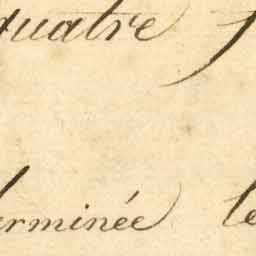 quatre
terminée le